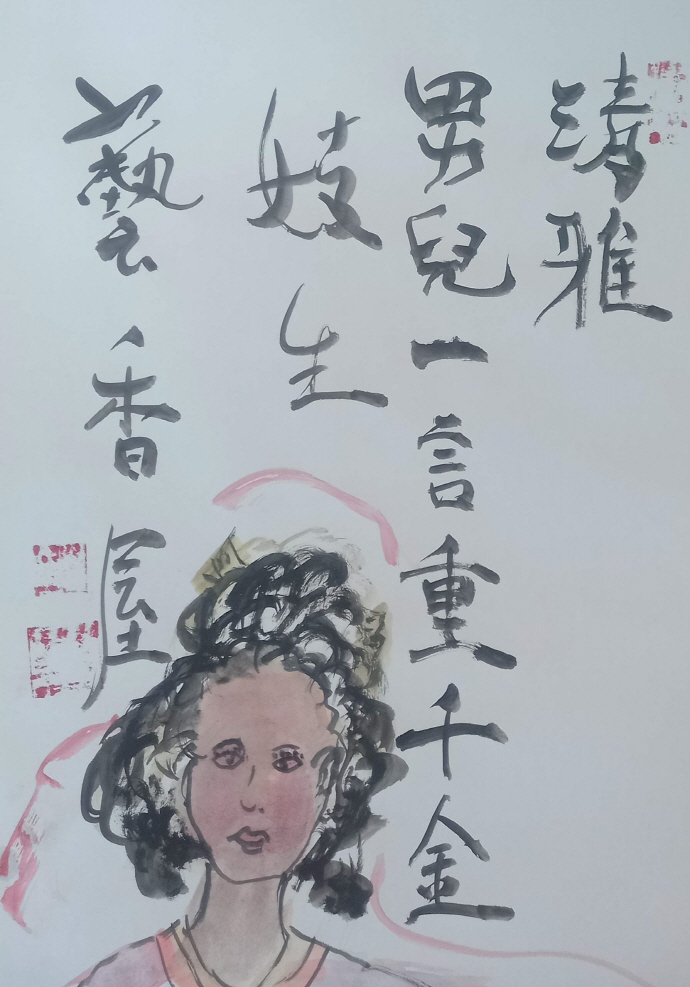 清雅
男兒一言重千金
妓生
藝香屋